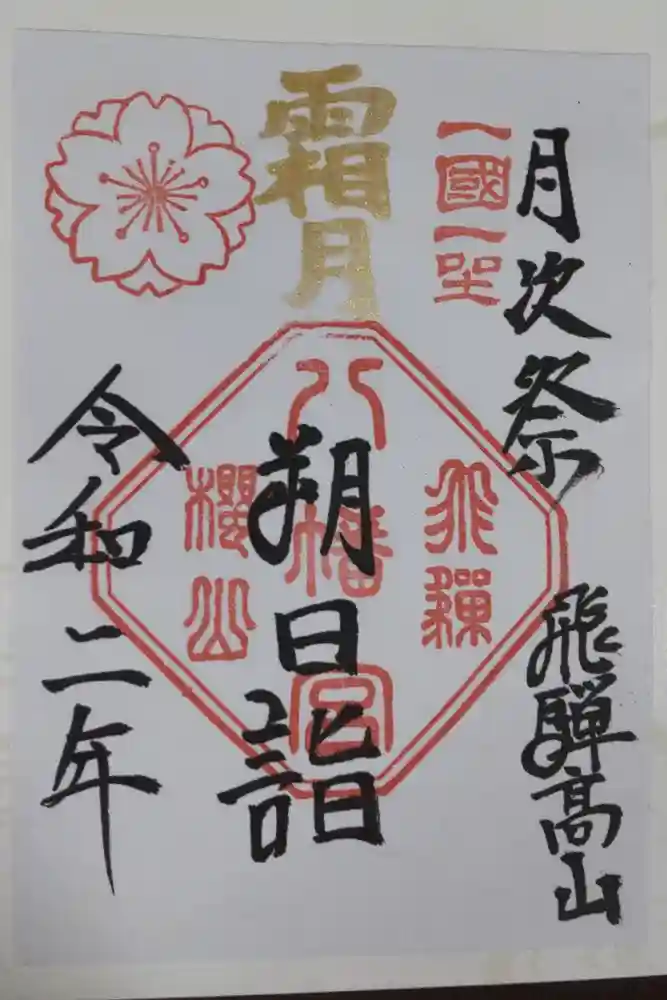 月次祭
飛騨高山
一國一坐
霜月
朔日詣
令和二年
飛驒
八幡宮
櫻山